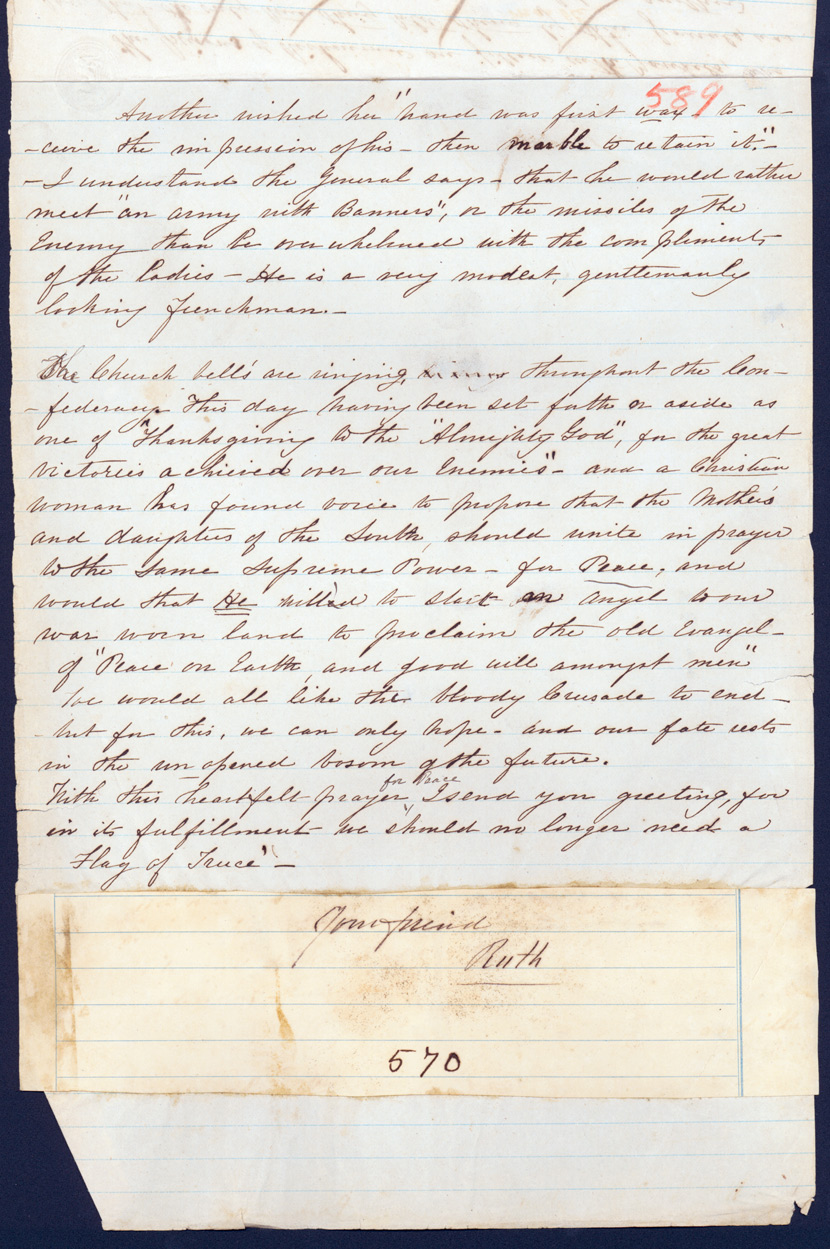 589
Another wished her "hand was first wax to re-
-ceive the impression of his - then marble to retain it." -
- I understand the General says - that he would rather
meet "an army with Banners", or the missiles of the
Enemy than be overwhelmed with the compliments
of the ladies - He is a very modest, gentlemanly
looking Frenchman. -
The Church bells are ringing, throughout the Con-
-federacy This day having been set forth or aside as
one of "Thanksgiving to the "Almighty God", for the great
victories achieved over our Enemies" - and a Christian
woman has found voice to propose that the Mothers
and daughters of the South, should unite in prayer
to the same Supreme Power - for Peace, and
would that He willed to start an angel to our
war worn land to proclaim the old Evangel -
of "Peace on Earth, and good will amongst men"
We would all like the bloody Crusade to end -
but for this, we can only hope - and our fate rests
in the un-opened bosom of the future.
for Peace
With this heartfelt prayer I send you greeting, for
in its fulfillment we should no longer need a
Flag of Truce" -
Your friend
Ruth
570